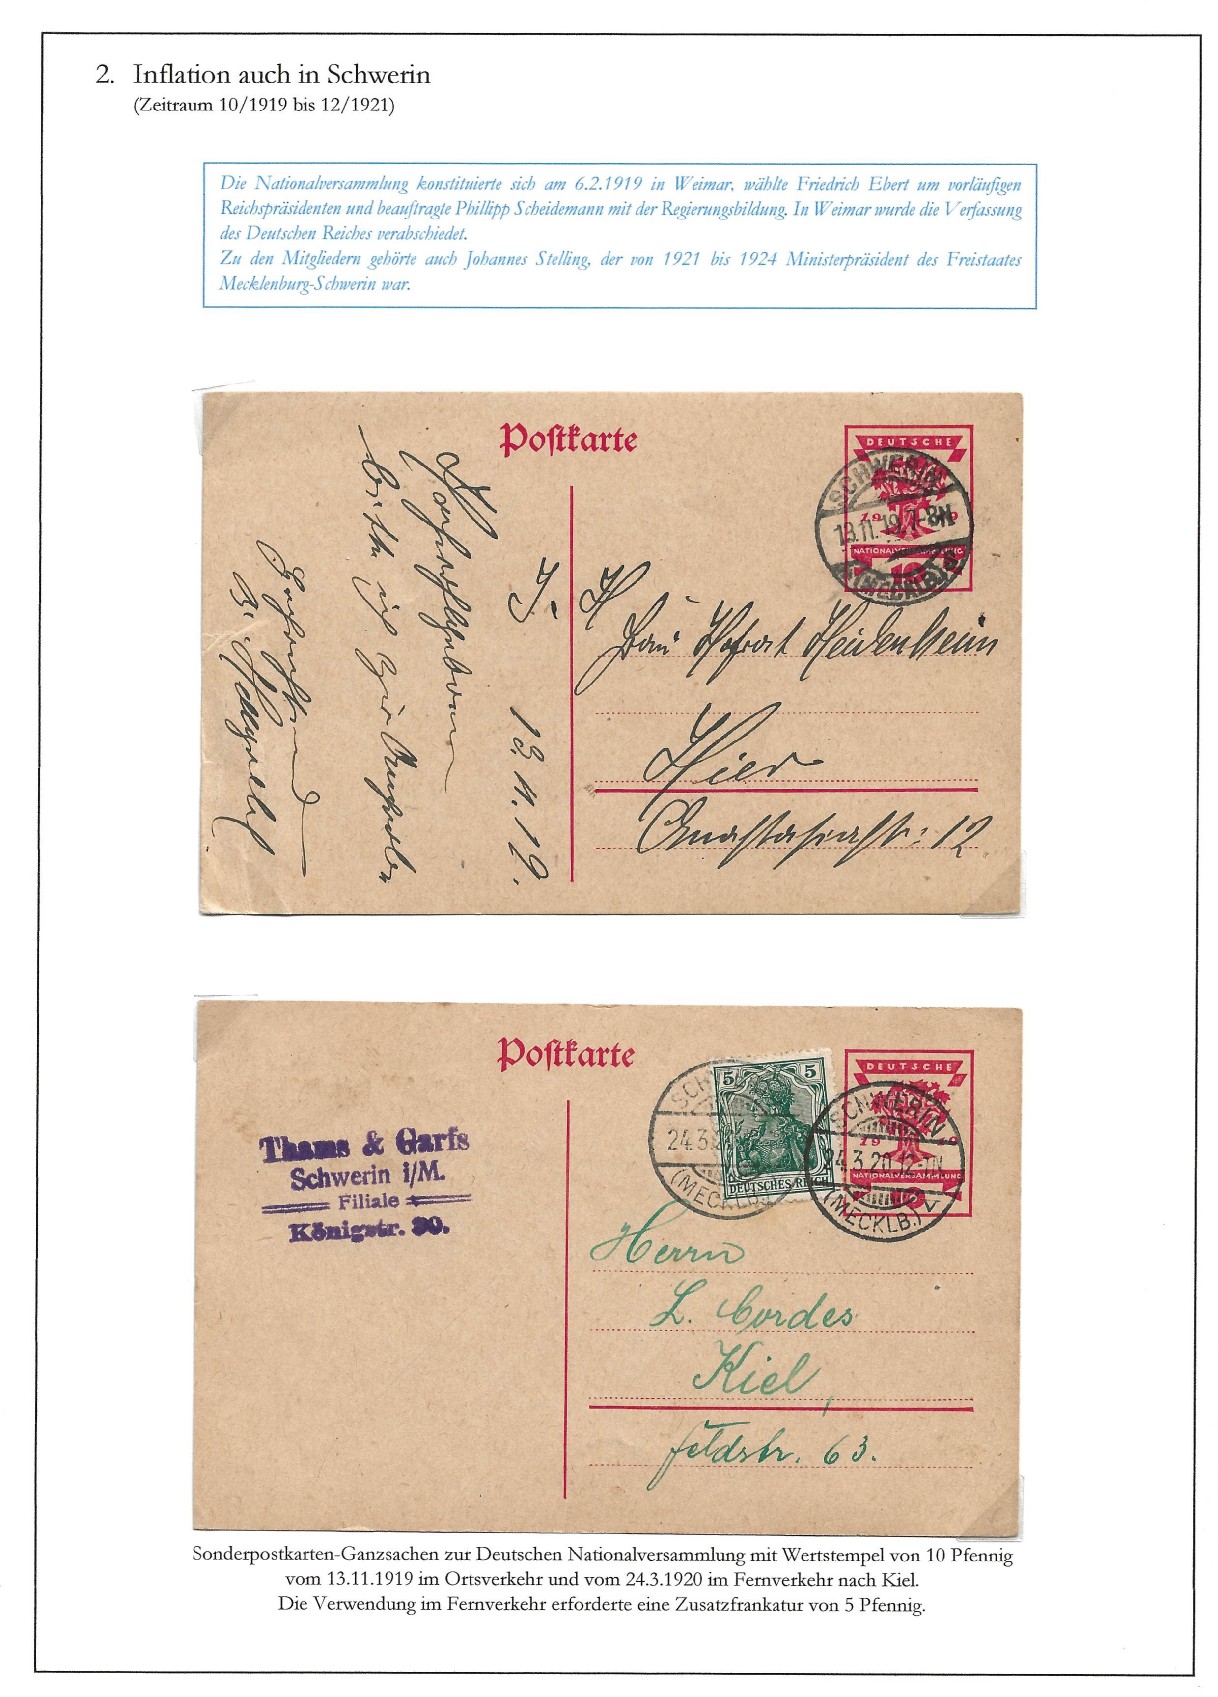 2. Inflation auch in Schwerin
(Zeitraum 10/1919 bis 12/1921)
Die Nationalversammlung konstituierte sich am 6.2.1919 in Weimar, wählte Friedrich Ebert um vorläufigen
Reichspräsidenten und beauftragte Phillipp Scheidemann mit der Regierungsbildung. In Weimar wurde die Verfassung
des Deutschen Reiches verabschiedet.
Zu den Mitgliedern gehörte auch Johannes Stelling, der von 1921 bis 1924 Ministerpräsident des Freistaates
Mecklenburg-Schwerin war.
Postkarte
DEUTSCHE
1919
NATIONALVERSAMMLUNG
10
SCHWERIN
13.11.19.7-8N
(MECKLB.)
Hofrat Heidenheim
Hier
12
13.11.19.
Postkarte
DEUTSCHE
1919
NATIONALVERSAMMLUNG
5 5
DEUTSCHES REICH
SCHWERIN
24.3.20.12-1N
(MECKLB.)
SCHWERIN
24.3.
(MECKLB.)
Thams & Garfs
Schwerin i/M.
Filiale
Königstr. 30.
Herrn
L. Cordes
Kiel,
Feldstr. 63.
Sonderpostkarten-Ganzsachen zur Deutschen Nationalversammlung mit Wertstempel von 10 Pfennig
vom 13.11.1919 im Ortsverkehr und vom 24.3.1920 im Fernverkehr nach Kiel.
Die Verwendung im Fernverkehr erforderte eine Zusatzfrankatur von 5 Pfennig.